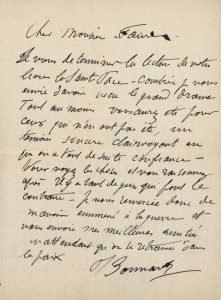 Cher Monsieur Faure
Je viens de terminer la lecture de votre
livre la Sainte Face - Combien je vous
envie d'avoir vécu le grand drame
Tout au moins vous avez été pour
ceux qui n'en ont pas été, un
témoin sincère clairvoyant en
qui on a tout de suite confiance -
Vous voyez les choses et vous raisonnez
après il y a tant de gens qui font le
contraire - je vous remercie donc de
m'avoir emmené à la guerre et
vous envoie mes meilleures amitiés
en attendant qu'on se retrouve dans
la paix
Bonnard